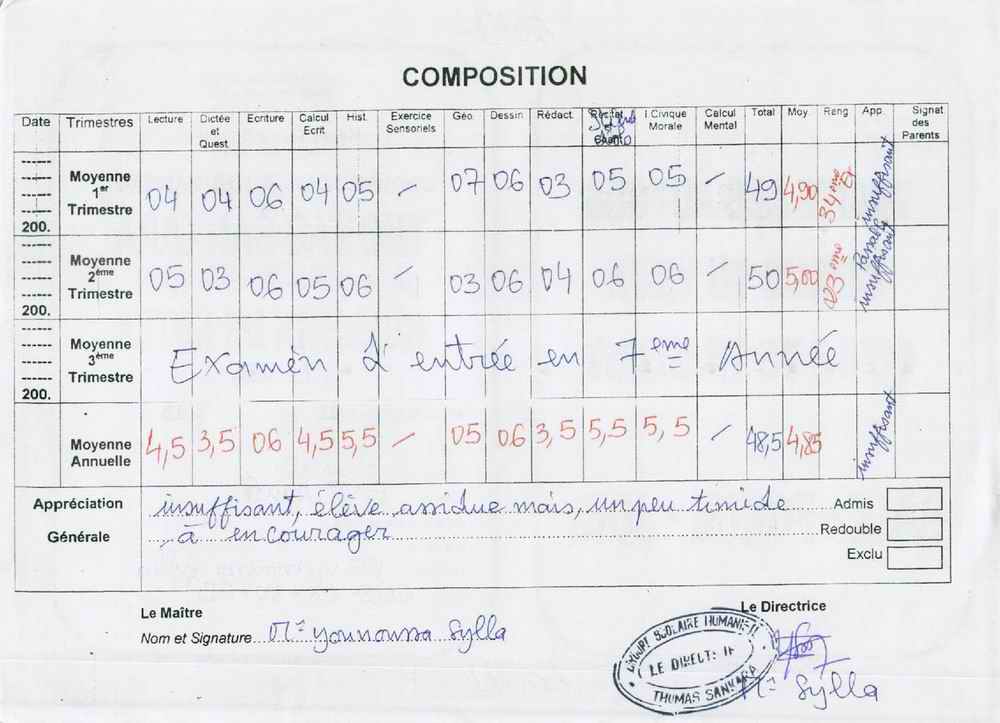 COMPOSITION
Date Trimestres Lecture Dictée et Quest. Ecriture Calcul Ecrit Hist. Exercice Sensoriels Géo. Dessin Rédact. I.Civique Morale Calcul Mental Total Moy. Rang App. Signat des Parents
Moyenne 1er Trimestre 04 04 06 04 05 - 07 06 03 05 05 - 49 4,90 34ème insuffisant
200.
Moyenne 2ème Trimestre 05 03 06 05 06 - 03 06 04 06 06 - 50 5,00 23ème insuffisant
200.
Moyenne 3ème Trimestre Examén d'entrée en 7eme Année
200.
Moyenne Annuelle 4,5 3,5 06 4,5 5,5 - 05 06 3,5 5,5 5,5 - 48,5 4,85 insuffisant
Appréciation Générale
insuffisant, élève assidue mais, un peu timide
à encourager
Admis
Redouble
Exclu
Le Maître
Nom et Signature Mr Younoussa Sylla
Le Directrice
SCOLAIRE
LE
THOMAS SANKARA
Mr Sylla